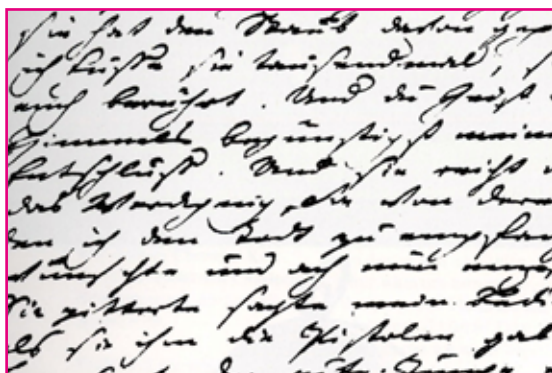 sie hat den Staub davon gep
ich küsse sie tausendmal, s
euch berührt. Und du Geist
Himmels begünstigst mein
Entschluss. Und sie reicht
das Werckzeug, Sie von deren
den ich den Todt zu empfan
wünschte und ach nun
Sie zitterte sagte mein Bedi
als sie ihm die Pistolen gab